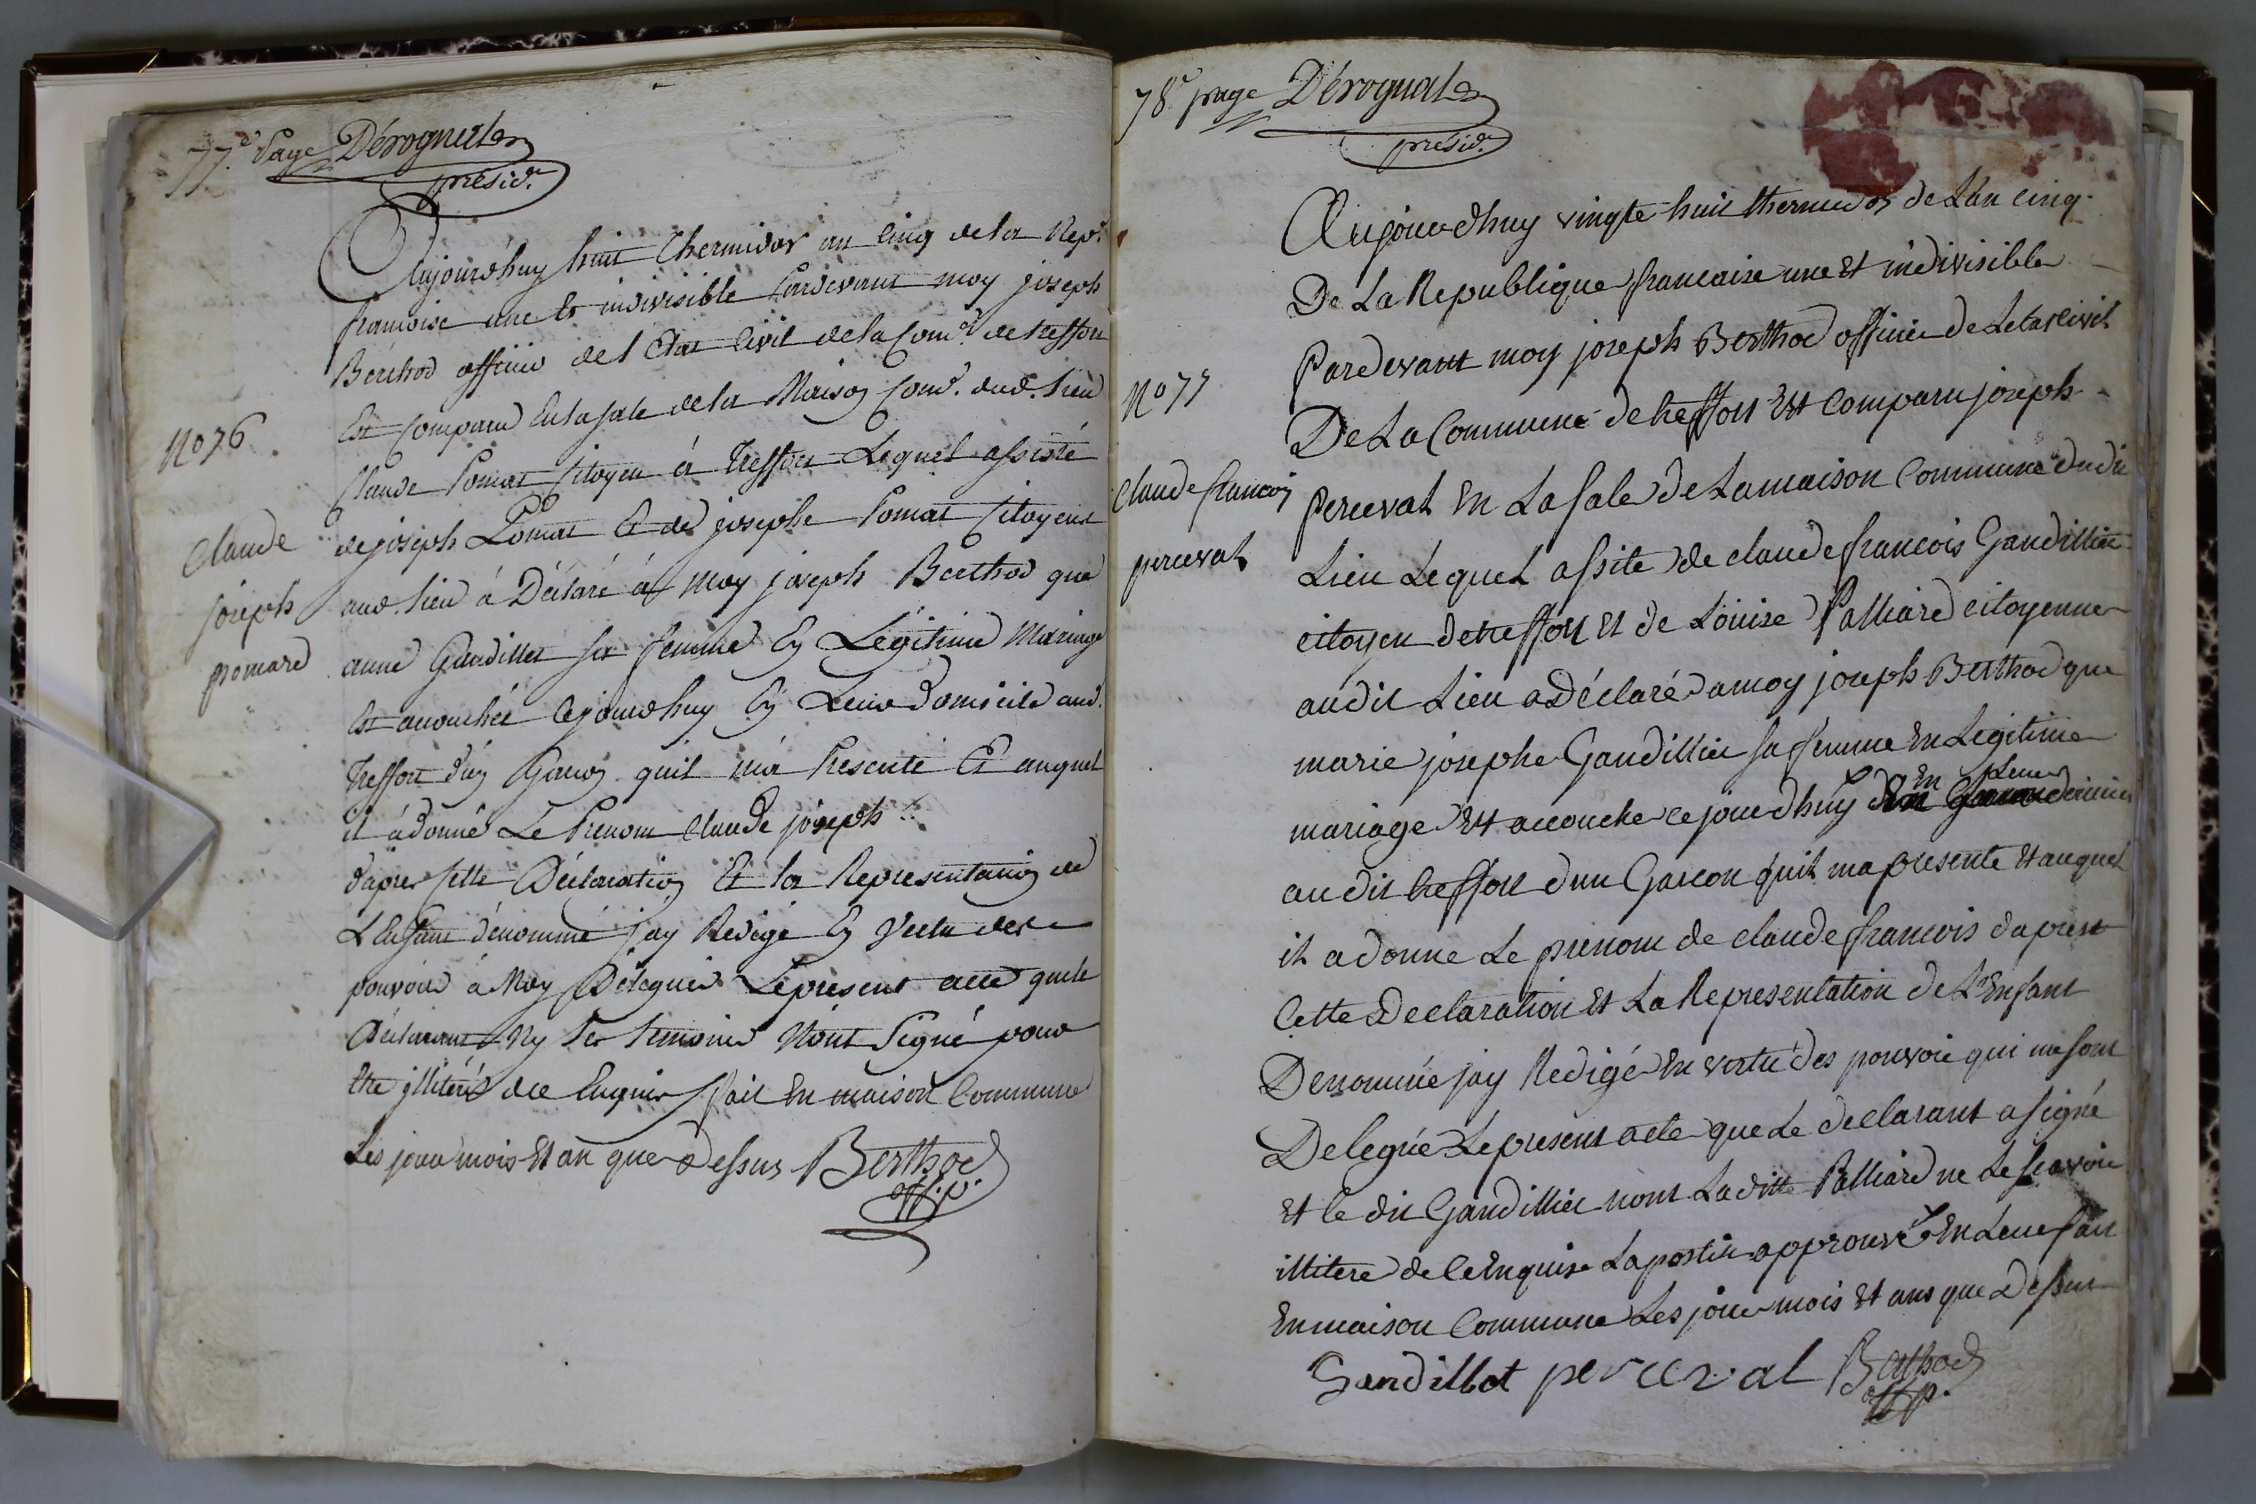 77.e Page Dérognat
présid.
Aujourdhuy huit Thermidor an Cinq de la Rep.
francoise une et indivisible Pardevant moy joseph
Berthod officier de l Etat Civil de la Com. de treffort
Est Comparu En la sale de la Maison Com. dud. lieu
No 76
Claude Pomat Citoyen à Treffort Lequel assisté
de joseph Pomat Et de josephe Pomat Citoyens
aud. lieu à Déclaré à Moy joseph Berthod que
Claude
joseph
pomard
anne Gaudillet sa femme En Légitime Mariage
Est accouchée cejourdhuy En Leur Domicile aud.
Treffort d'un Garcon quil m'a Presenté Et auquel
il à donné Le Prenom Claude joseph
d'apres Cette Déclaration Et la Representation de
L'Enfant dénommé jay Redigé En Vertu des
pouvoirs à Moy Délegués Le present acte que le
Déclarant Ny Ses temoins N'ont Signé pour
Etre illiterés de ce Enquis fait En maison Commune
Les jour mois Et an que Dessus Berthod
off. p.
78e page Dérognat
présid.
Aujourdhuy vingte huit thermidor de Lan cinq
De La Republique francaise une Et indivisible
Pardevant moy joseph Berthod officier de Letat civil
No 77
De La Commune de treffort Est Comparu joseph
Claude francois
perceval
perceval En La Sale de Lamaison Commune du dit
Lieu Lequel assite de claude francois Gaudillier
citoyen de treffort Et de Louise Palliard citoyenne
audit Lieu a Déclaré a moy joseph Berthod que
marie josephe Gaudillier sa femme En Legitime
mariage Est accouche ce jourdhuy En Leur
au dit treffort dun Garcon quil ma presente Et auquel
il a donne Le prenom de claude francois dapres
Cette Declaration Et La Representation de L'Enfant
Denommée jay Redigé En vertu des pouvoir qui me sont
Delegué Le present acte que Le declarant a signé
Et le dit Gaudillier nom La ditte Palliard ne Le scavoir
illitere de ce Enquise Lapostile approuvé En Leur fait
En maison Commune Les jour mois Et ans que Dessus
Gandillot perceval Berthod
off. p.